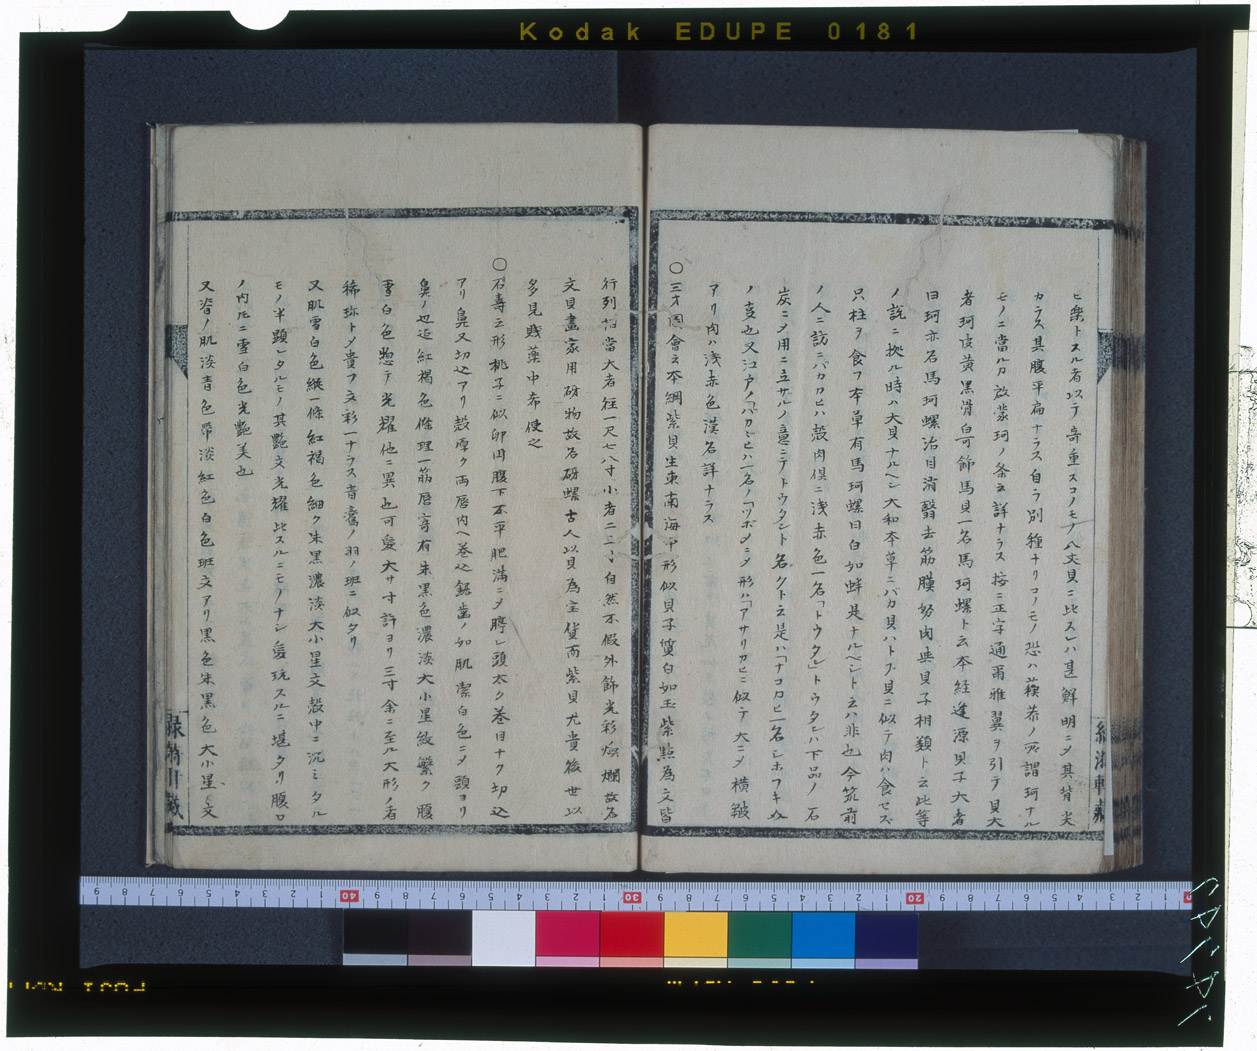 Kodak EDUPE 0181
ヒ樂トスル者以テ奇重スコノモノ八丈貝ニ比スレハ甚鮮明ニメ其背尖
カラス其腹平扁ナラス自ラ別種ナリコノモノ恐ハ蘓恭ノ所謂珂ナル
モノニ當ル乃啟蒙珂ノ条云詳ナラス按ニ正字通爾雅翼ヲ引テ貝大
者珂皮黄黒滑白可飾馬貝一名馬珂螺ト云本経逢源貝子大者
曰珂亦名馬珂螺治目消翳去筋膜努肉與貝子相類ト云此等
ノ説ニ拠ル時ハ大貝ナルヘシ大和本草ニバカ貝ハトリ貝ニ似テ肉ハ食セズ
只柱ヲ食フ本草有馬珂螺曰白如蚌是ナルベシト云ハ非也今筑前
ノ人ニ訪ニバカカヒハ殻肉倶ニ浅赤色一名「トウタン」トウタンハ下品ノ石
炭ニメ用ニ立サルノ意ニテトウタント名クト云是ハ「ナコカヒ一名シホフキカ
ノ支也又江户ノ「バカカヒハ一名ノ「ツボメニメ形ハ「アサリカヒニ似テ大ニメ横皺
アリ肉ハ浅赤色漢名詳ナラス
〇三才圖會云本綱紫貝生東南海中形似貝子質白如玉紫點為文皆
行列相當大者徑一尺七八寸小者二三寸自然不假外飾光彩煥爛故名
文貝畫家用砑物故名砑螺古人以貝為宝貨而紫貝尤貴後世以
多見賎藥中希使之
〇石壽云形桃子ニ似卵円腹下不平肥満ニメ臍シ頭太ク巻目ナク切込
アリ鼻又切込アリ殻厚ク両唇内ヘ巻込鋸歯ノ如肌潔白色ニメ頭ヨリ
鼻ノ也迄紅褐色條理一筋唇寄有朱黒色濃淡大小星紋繁ク腹
雪白色惣テ光耀他ニ異也可愛大サ寸許ヨリ三寸余ニ至ル大形ノ者
稀珎トメ貴フ文彩一ナラス音鳶ノ羽ノ班ニ似タリ
又肌雪白色縦一條紅褐色細ク朱黒濃淡大小星文殻中ニ沉ミタル
モノ半顕レタルモノ其艶文光耀比スルニモノナシ愛玩スルニ堪タリ腹口
ノ内凡ニ雪白色光艶美也
又沓ノ肌淡青色帶淡紅色白色班文アリ黒色朱黒色大小星ノ文